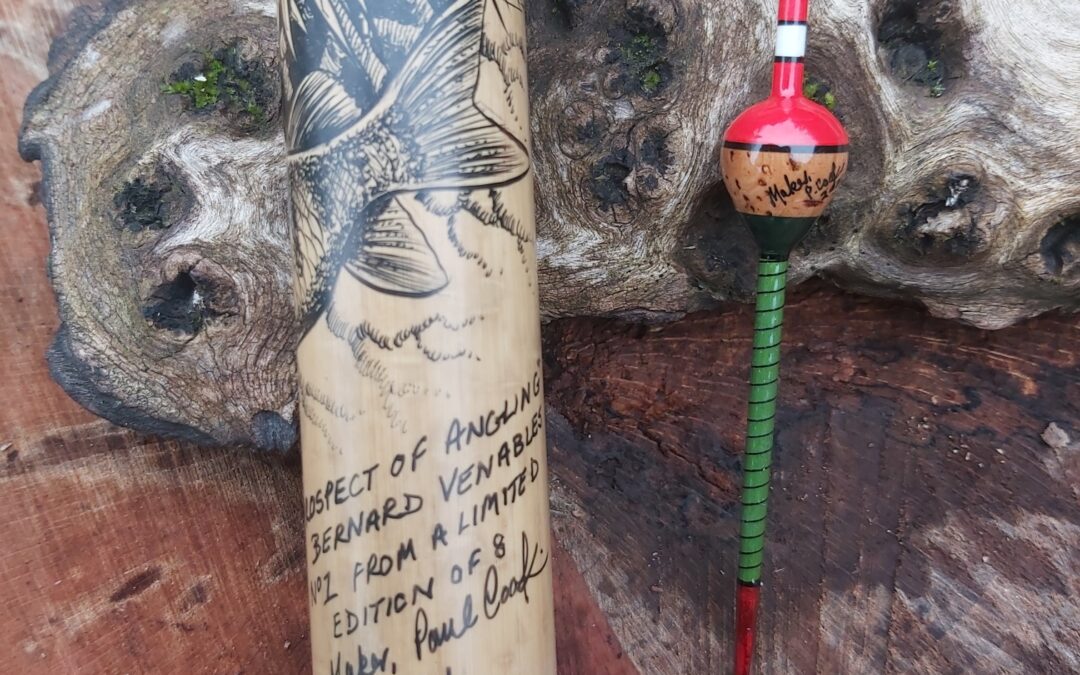 ROSPECT OF ANGLING
BERNARD VENABLES
Nº1 FROM A LIMITED
EDITION OF 8
Maker, Paul Cook.
Maker,
P. Cook